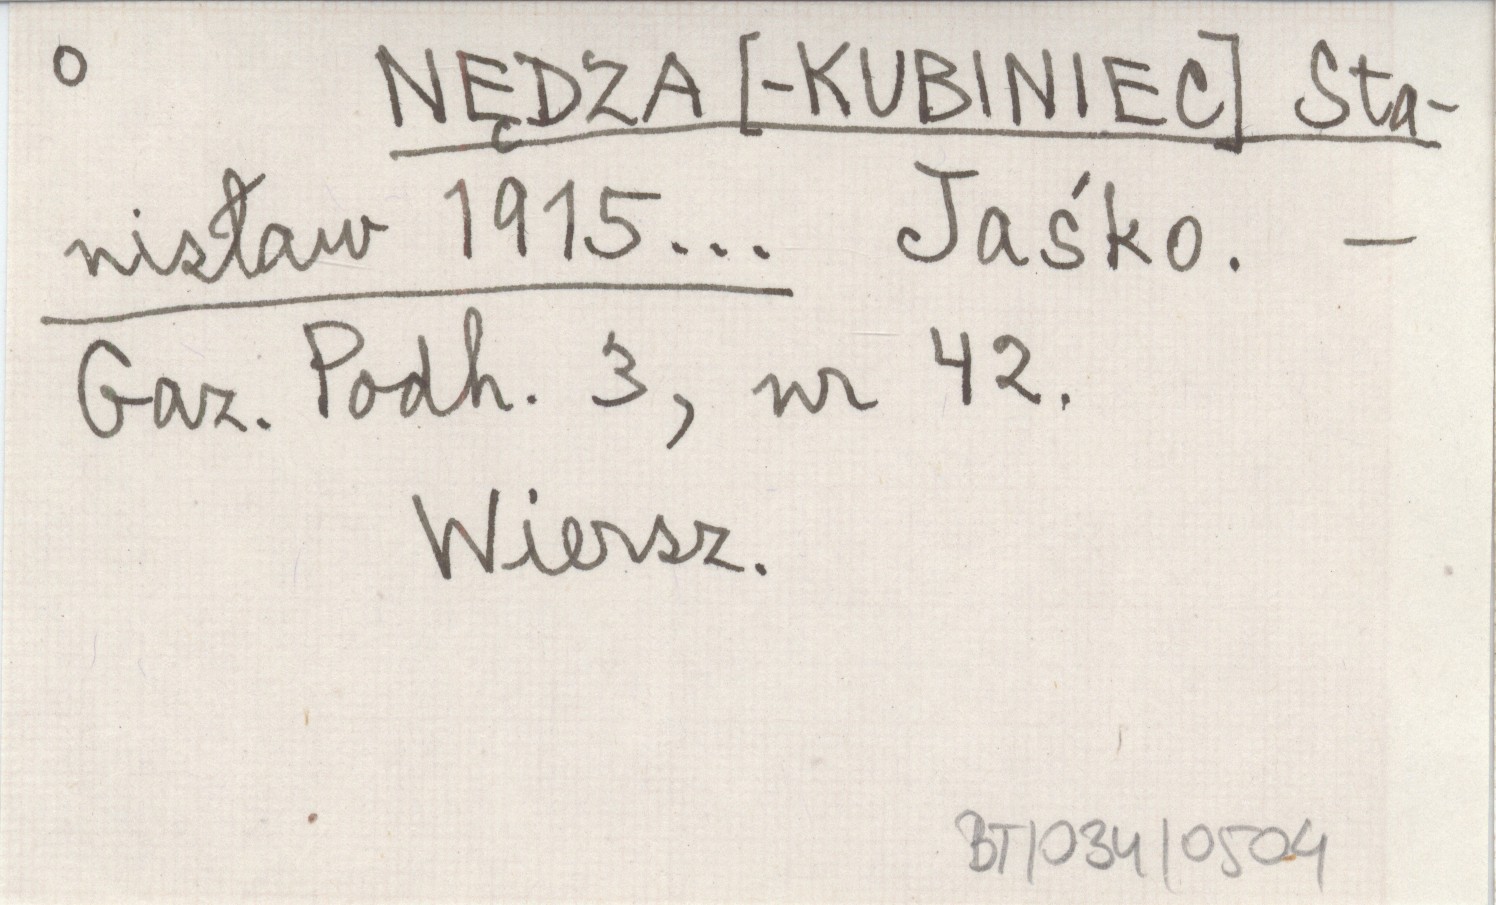 o NĘDZA [-KUBINIEC] Sta-
nisław 1915... Jaśko. —
Gaz. Podh. 3, nr 42.
Wiersz.
BT/034/0504